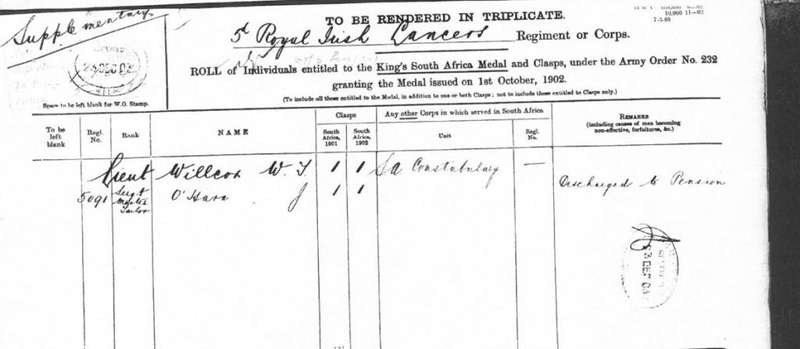 TO BE RENDERED IN TRIPLICATE.
10,000 11-02
Supplementary
5th Royal Irish Lancers Regiment or Corps.
ROLL of Individuals entitled to the King's South Africa Medal and Clasps, under the Army Order No. 232
granting the Medal issued on 1st October, 1902.
(To include all those entitled to the Medal, in addition to one or both Clasps; not to include those entitled to Clasps only.)
Space to be left blank for W.O. Stamp.
To be left blank
Regl. No.
RANK
NAME
Clasps
South Africa, 1901
South Africa, 1902
Any other Corps in which served in South Africa
Unit
Regl. No.
REMARKS
(including causes of men becoming non-effective, forfeitures, &c.)
Lieut Willcox W. T. 1 1 S A Constabulary —
5091 Sergt Master Tailor O'Hara J 1 1 Discharged to Pension